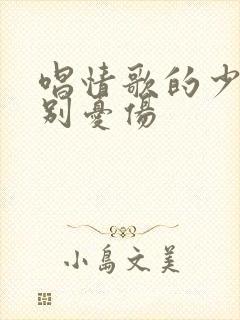 唱情歌的少
别憂傷
小島文美